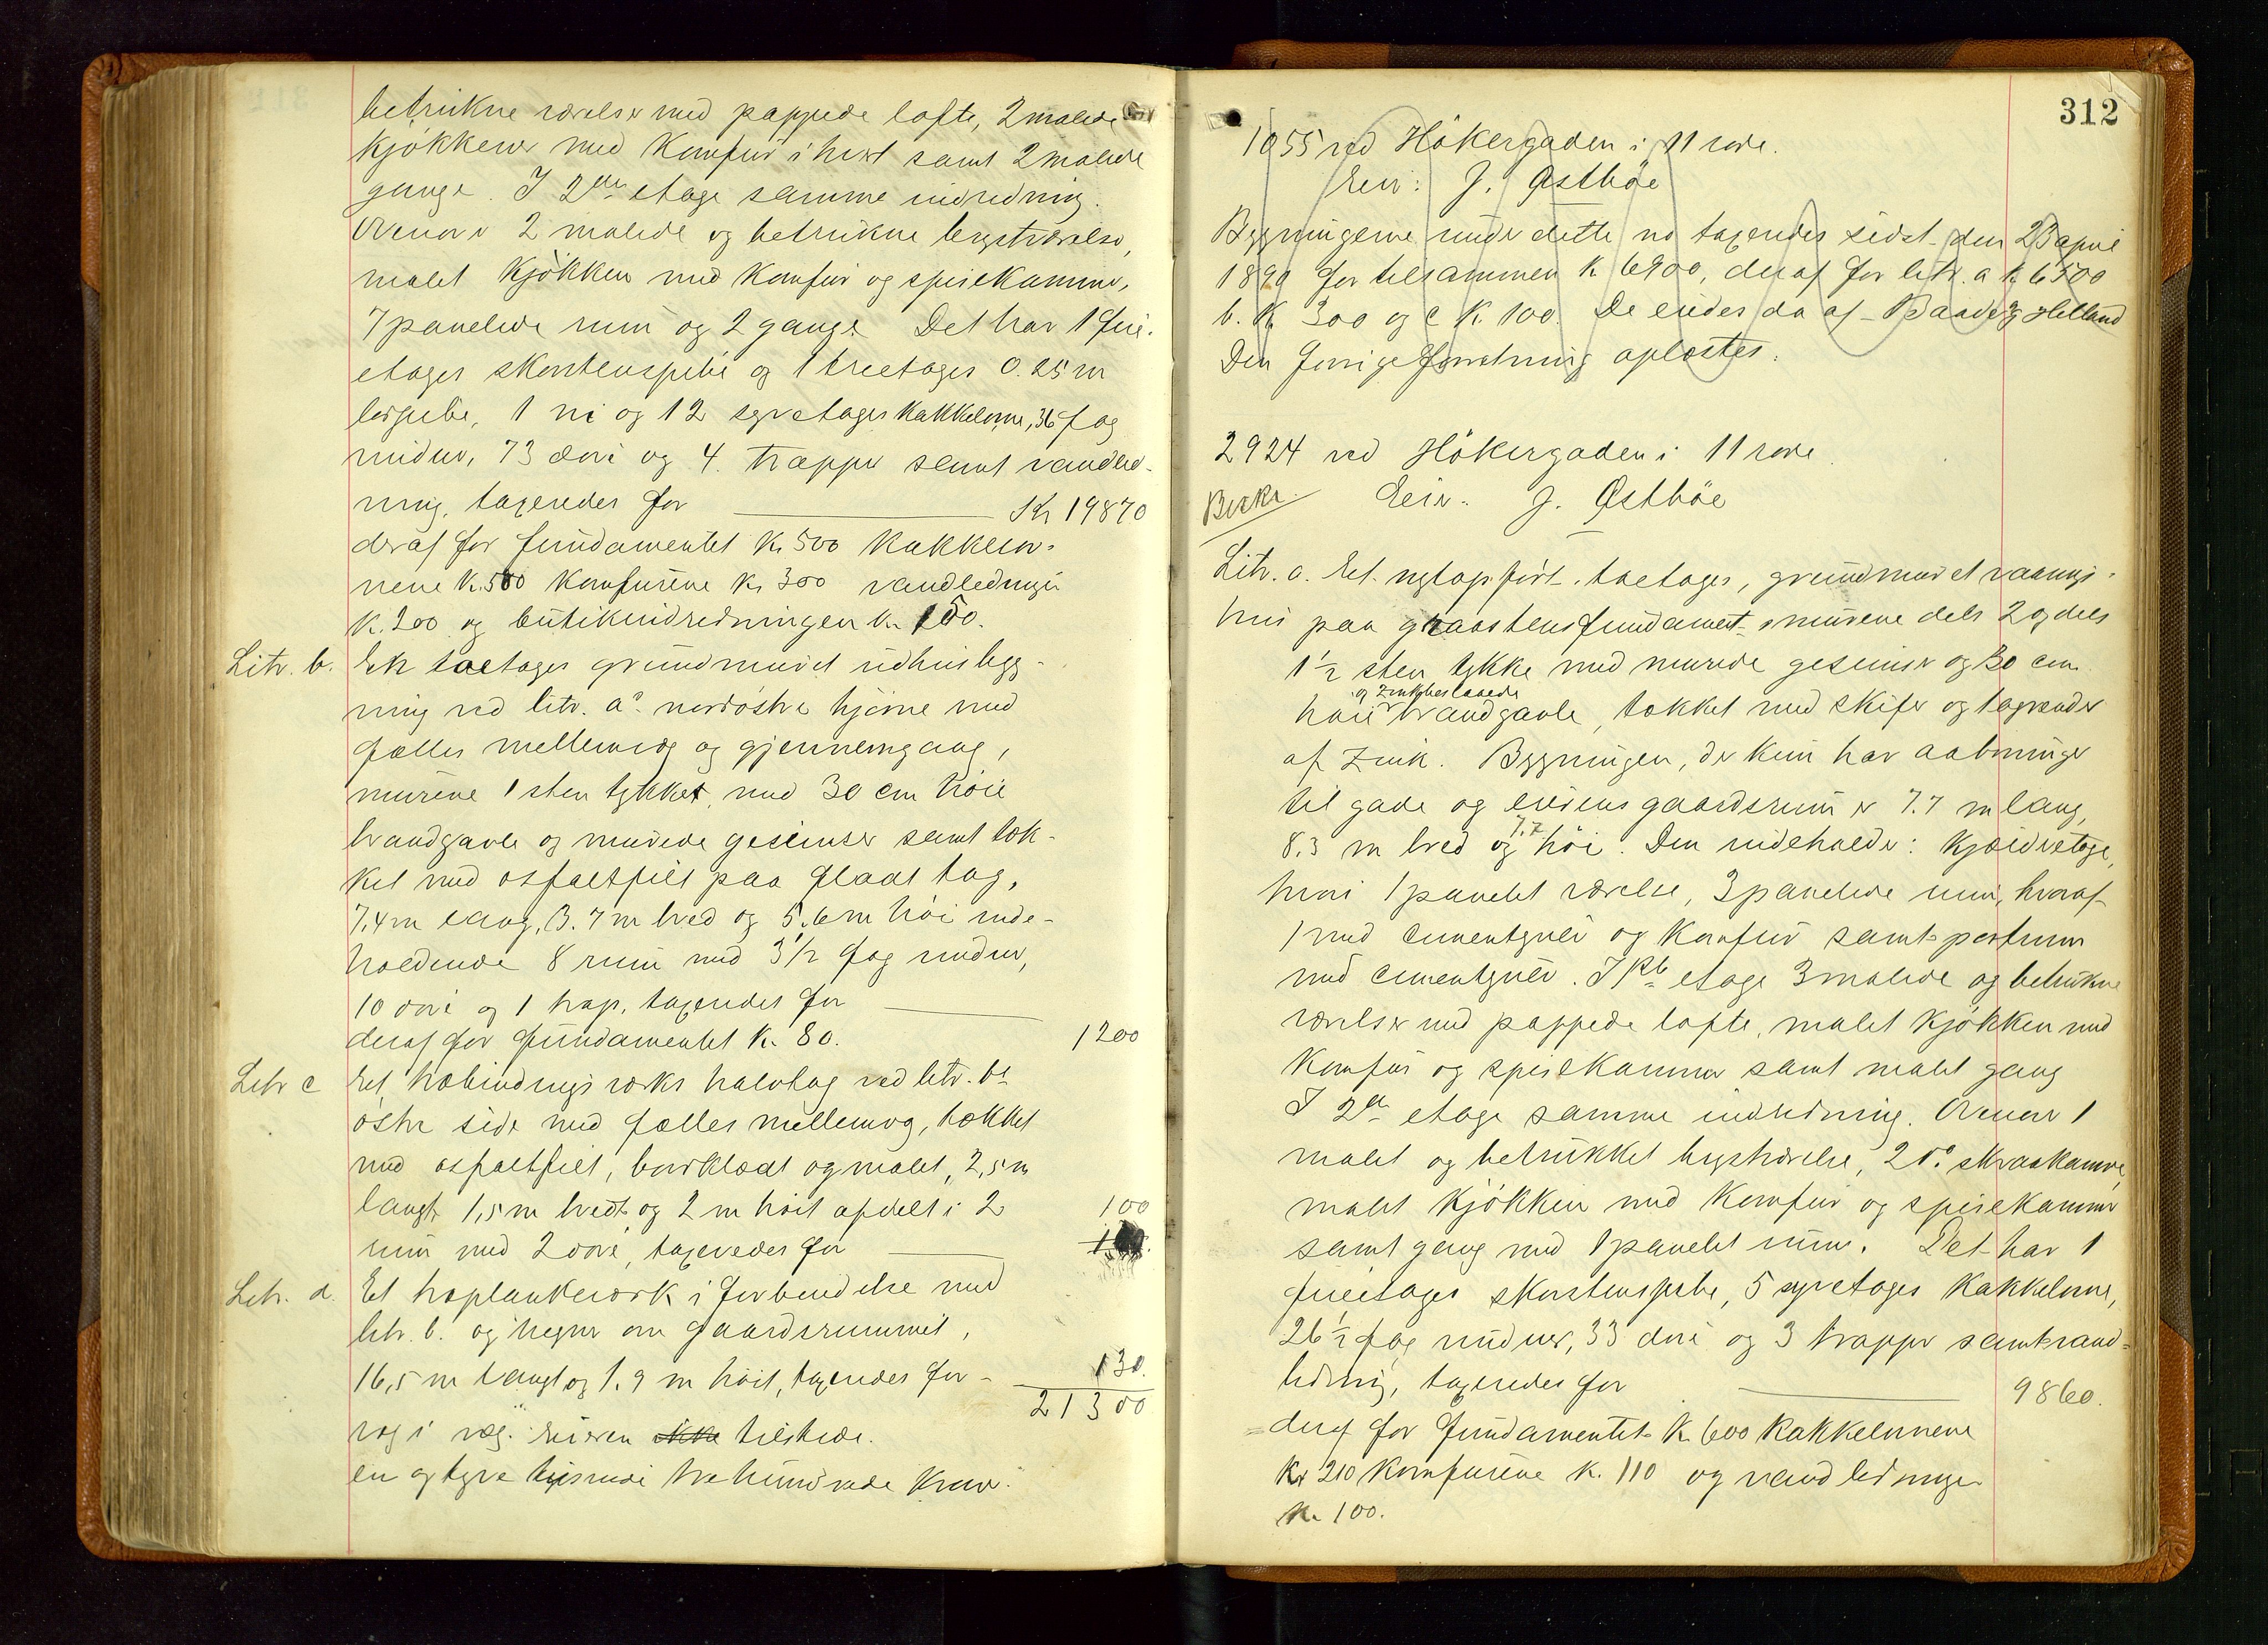 betrukne værelser med pappede lofte, 2 malede
kjøkkener med Komfur i hvert samt 2 malede
gange. I 2den etage samme indredning.
Ovenover 2 malede og betrukne brystværelser,
malet Kjøkken med Komfur og spisekammer,
7 panelede rum og 2 gange Det har 1 fire-
etages skorstenspibe og 1 treetages 0.25 m
lerpibe, 1 ni og 12 syvetages Kakkelovne, 36 fag
vinduer, 73 døre og 4 trapper samt vandled-
ning, taxeredes for Kr 19870
deraf for fundamentet K. 500 Kakkelov-
nene K. 500 Komfurene Kr 300 vandledningen
K. 200 og butikindredningen K. 150.
Litr. b. En toetages grundmuret udhusbyg-
ning ved litr. a's nordøstre hjørne med
fælles mellemvæg og gjennemgang,
murene 1 sten tykke, med 30 cm høie
brandgavle og murede gesimser samt tæk-
ket med asfaltfilt paa fladt tag,
7,4 m lang, 3.7 m bred og 5.6 m høi inde-
holdende 8 rum med 3 1/2 fag vinduer,
10 døre og 1 trap, taxeredes for
deraf for fundamentet K. 80. 1200
Litr c Et træbindingsværks halvtag ved litr. b's
østre side med fælles mellemvæg, tækket
med asfaltfilt, bordklædt og malet, 2,5 m
langt, 1,5 m bredt og 2 m høit afdelt i 2 100
rum med 2 døre, taxeredes for
Litr. d. Et træplankeværk i forbindelse med
litr. b. og hegner om gaardsrummet,
16,5 m langt og 1.9 m høit, taxeredes for 130.
21300
væg i væg. Eieren ikke tilstede.
en og tyve tusinde tre hundrede Kroner.
312
1055 ved Høkergaden i 11 rode.
Eier: J. Østbøe
Bygningerne under dette no taxeredes sidst den 23 april
1890 for tilsammen K 6900, deraf for litr. a K 6500
b. K 300 og c K. 100. De eiedes da af Baade & Helland
Den forrige forretning opløstes.
2924 ved Høkergaden i 11 rode.
Eier. J. Østbøe
Litr. a. Et nyt opført toetages, grundmuret vaanings-
hus paa graastensfundament, murene dels 2 og dels
1 1/2 sten tykke med murede gesimser og 30 cm
og zinkbeslaaede
høie brandgavle, tækket med skifer og tagrender
af zink. Bygningen, der kun har aabninger
til gade og eierens gaardsrum er 7.7 m lang,
7,7
8.3 m bred og høi. Den indeholder: Kjælderetage,
hvori 1 panelet værelse, 3 panelede rum, hvoraf
1 med cementgulv og Komfur samt portrum
med cementgulv. I 1ste etage 3 malede og betrukne
værelser med pappede lofte, malet Kjøkken med
Komfur og spisekammer samt malet gang
I 2den etage samme indredning. Ovenover 1
malet og betrukket brystværelse, 2 do skraakamre
malet Kjøkken med Komfur og spisekammer
samt gang med 1 panelet rum. Det har 1
fireetages skorstenspibe, 5 syvetages Kakkelovne,
26 1/2 fag vinduer, 33 døre og 3 trapper samt vand-
ledning, taxeredes for 9860.
deraf for fundamentet K. 600 Kakkelovnene
Kr 210 Komfurene K. 110 og vandledningen
K. 100.